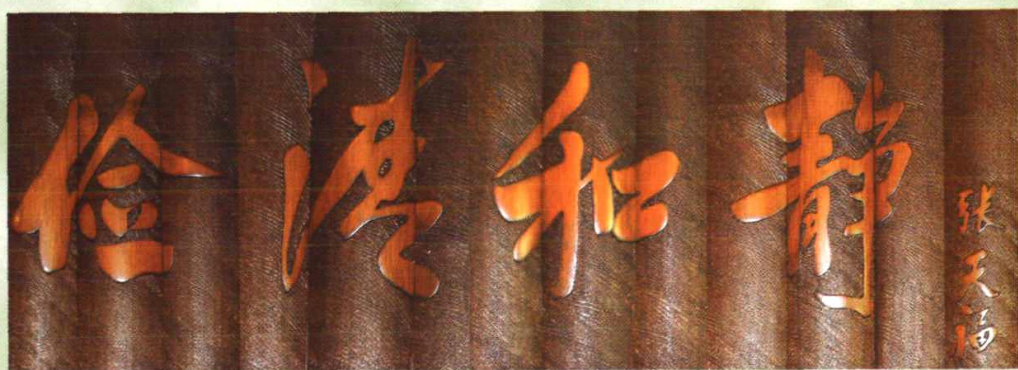 俭清和静
張天福